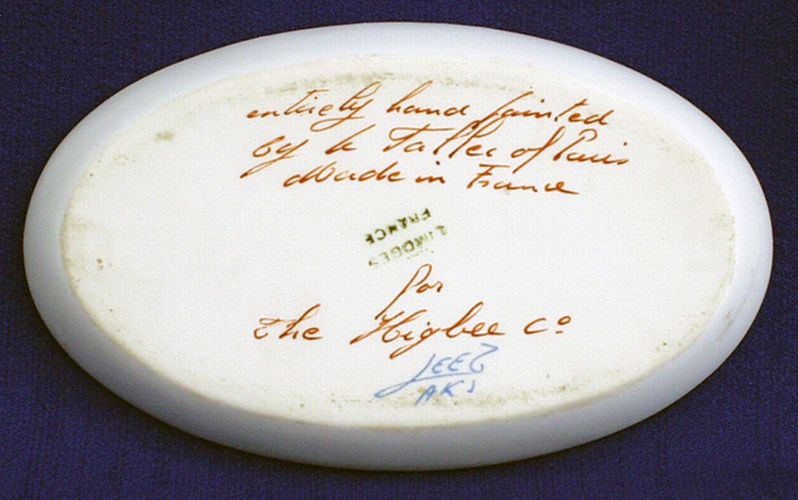 entirely hand painted
by Le Tallec of Paris
Made in France
LIMOGES
FRANCE
for
The Higbee Co